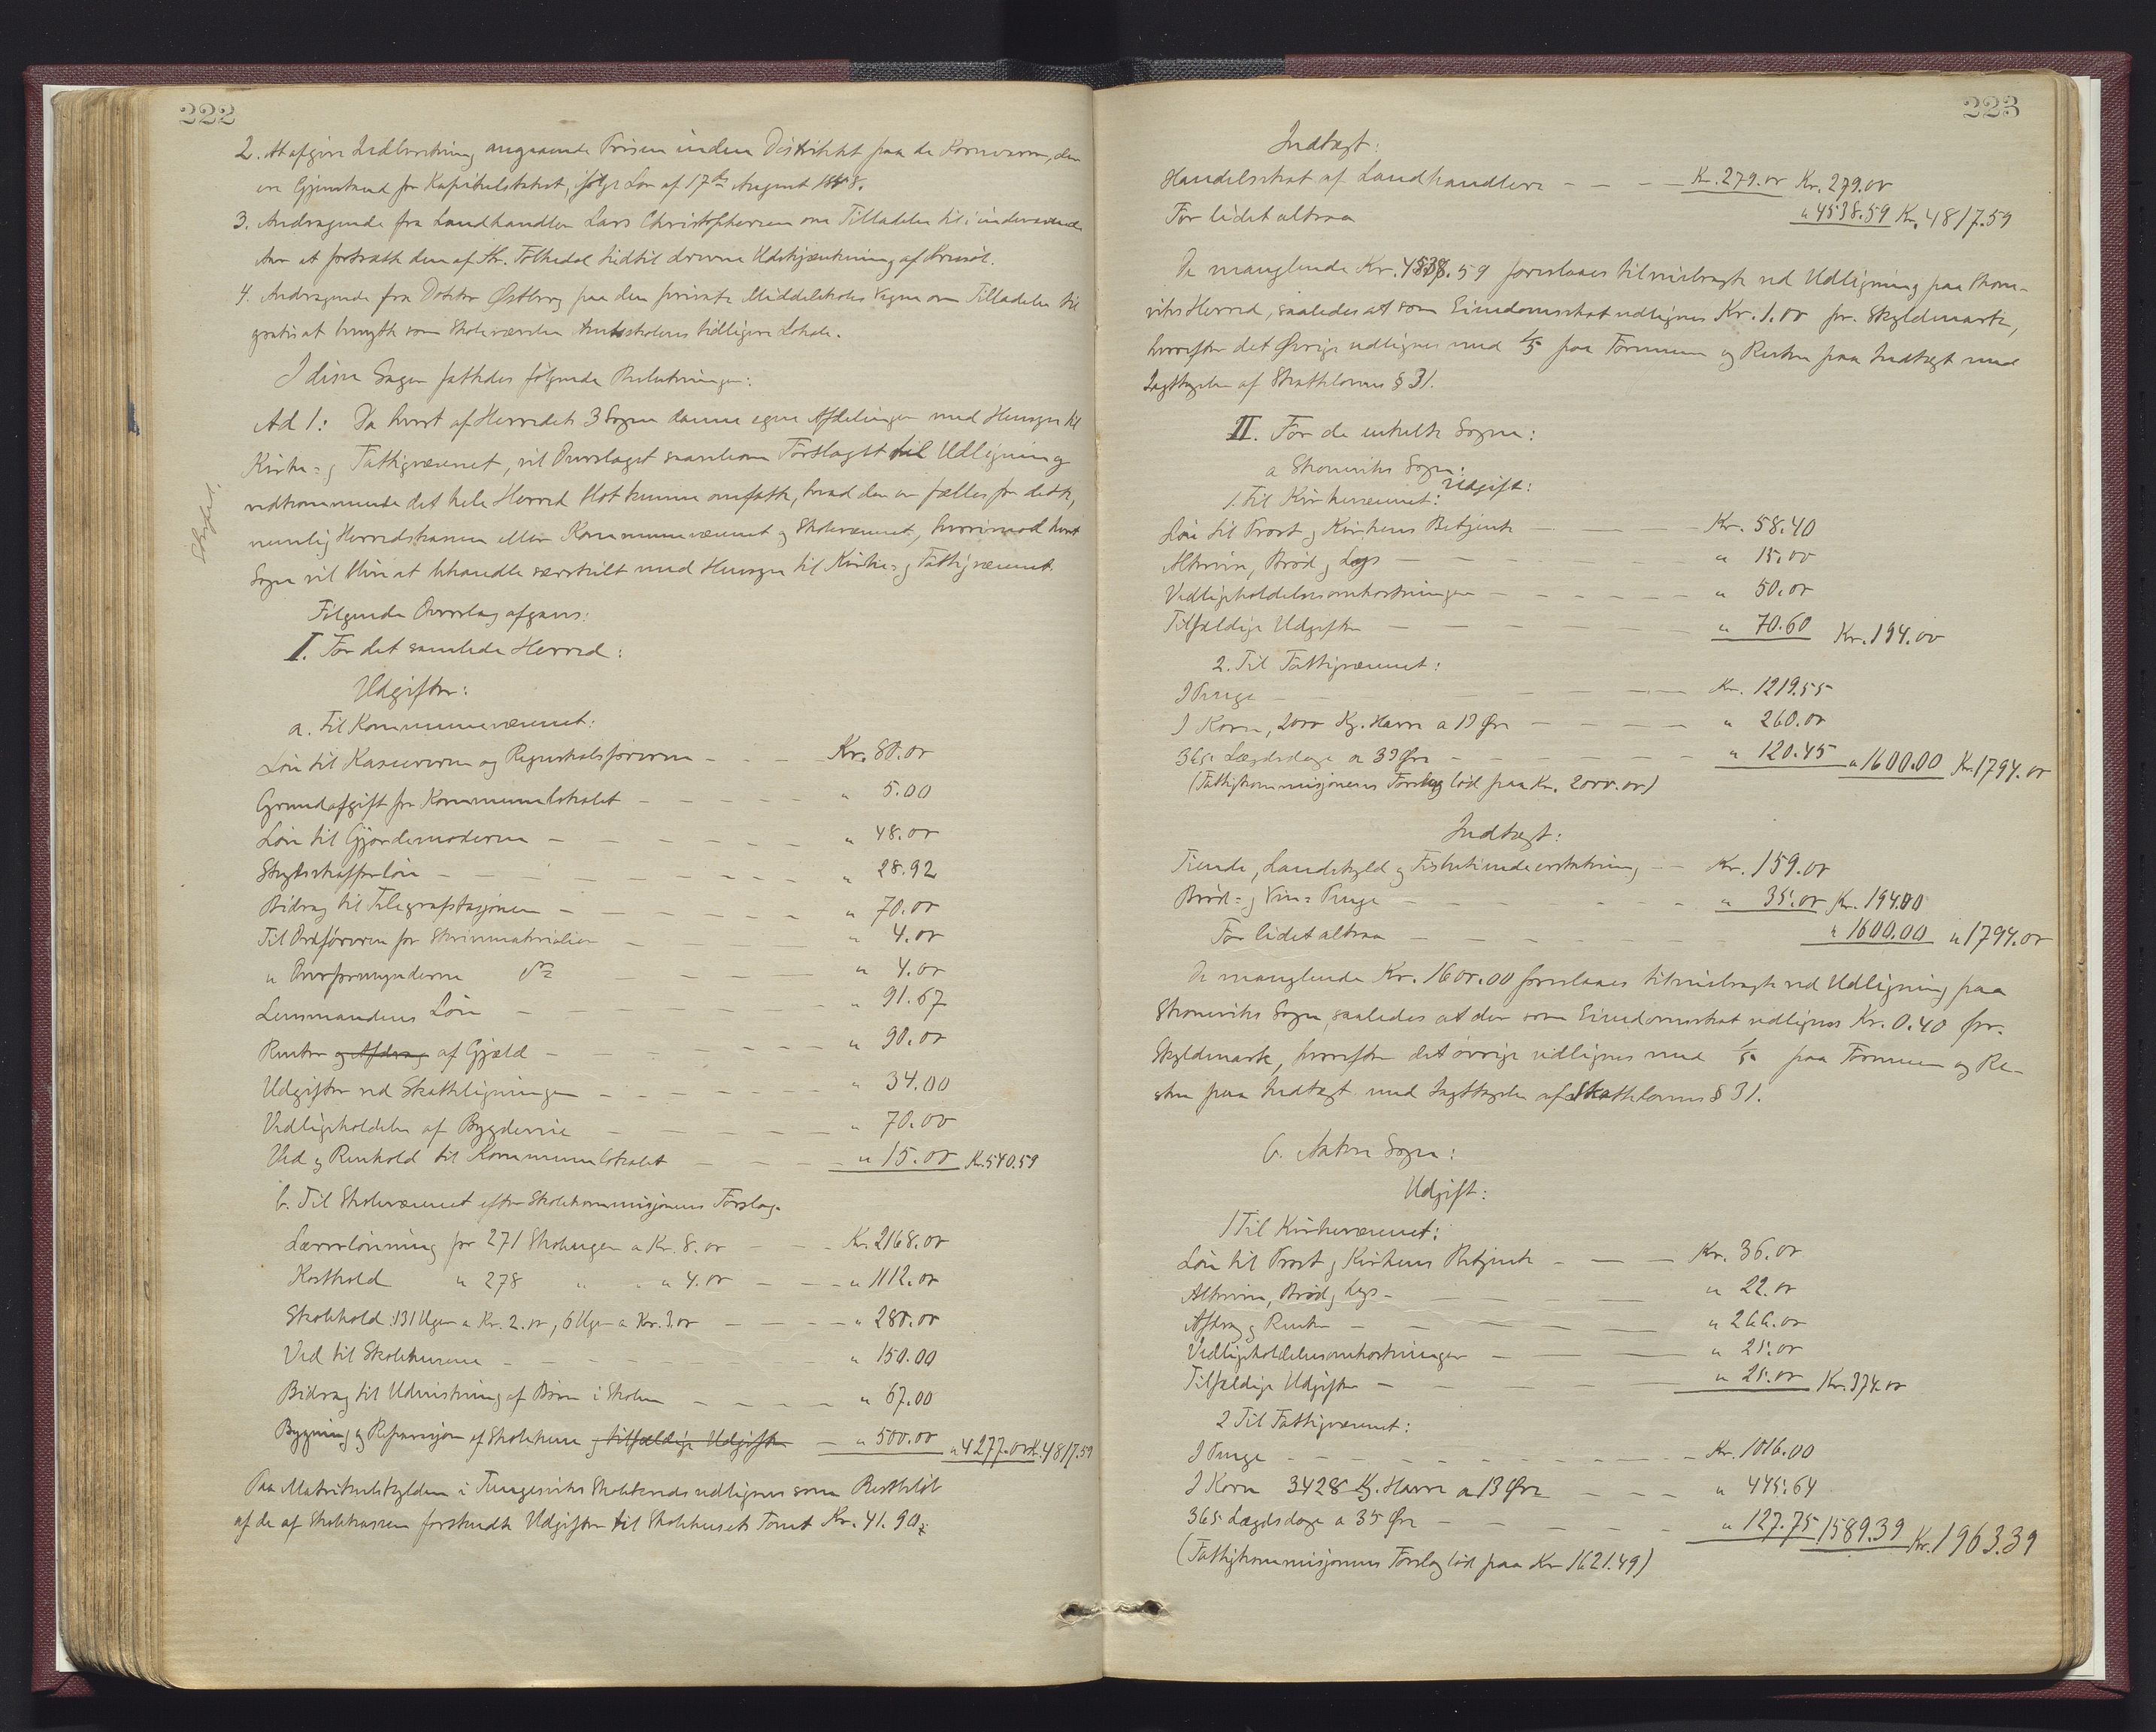 222
2. At afgive Indberetning angaaende Prisen inden Distriktet paa de Kornvarer, der
ere Gjenstand for Kapitelstakst, ifølge Lov af 17de August 1818.
3. Andragende fra Landhandler Lars Christophersen om Tilladelse til i indeværende
Aar at fortsætte den af Hr. Folkedal hidtil drevne Udskjænkning af
4. Andragende fra Doktor Østberg paa den private Middelskoles Vegne om Tilladelse til
gratis at benytte som Skoleværelse Amtsskolens tidligere Lokale.
I disse Sager fattedes følgende Beslutninger:
Skyld.
Ad 1: Da hvert af Herredets 3 Sogne danne egne Afdelinger med Hensyn til
Kirke- og Fattigvæsenet, vil Overslaget saavelsom Forslaget til Udligning
vedkommende det hele Herred blot kunne omfatte, hvad der er fælles for dette,
nemlig Herredskassen eller Kommunevæsenet og Skolevæsenet, hvorimod hvert
Sogn vil blive at behandle særskilt med Hensyn til Kirke- og Fattigvæsenet.
Følgende Overslag afgaves:
I. For det samlede Herred:
Udgifter:
a. Til Kommunevæsenet:
Løn til Kassereren og Regnskabsføreren - - - - Kr. 80.00
Grundafgift for Kommunelokalet - - - - - " 5.00
Løn til Gjordemoderen - - - - - - " 48.00
Skydsskafferløn - - - - - - - " 28.92
Bidrag til Telegrafstasjonen - - - - - " 70.00
Til Ordføreren for Skrivematerialier - - - " 4.00
" Overformynderne do - - - " 4.00
Lensmandens Løn - - - - - - " 91.67
Renter og Afdrag af Gjæld - - - - - " 90.00
Udgifter ved Skatteligningen - - - - " 34.00
Vedligeholdelse af Bygdeveie - - - - " 70.00
Ved og Renhold til Kommunelokalet - - - " 15.00 Kr. 540.59
b. Til Skolevæsenet efter Skolekommisjonens Forslag
Lærerlønning for 271 Skoleuger a Kr. 8.00 - - - Kr. 2168.00
Kosthold " 278 " " " 4.00 - - - " 1112.00
Skolehold: 131 Uger a Kr. 2.00, 6 Uger a Kr. 3.00 - - - " 280.00
Ved til Skolehusene - - - - " 150.00
Bidrag til Udvistning af Børn i Skolen - - - - " 67.00
Bygning og Reparasjon af Skolehuse og tilfældige Udgifter - " 500.00 " 4277.00 Kr. 4817.59
Paa Matrikulskylden i Tungesviks Skolekreds udlignes som Restbeløb
af de af Skolekassen forskudte Udgifter til Skolehusets Tomt Kr. 41.90.
223
Indtægt:
Handelsskat af Landhandlere - - - - Kr. 279.00 Kr. 279.00
For lidet altsaa " 4538.59 Kr. 4817.59
De manglende Kr. 4538.59 foreslaaes tilveiebragte ved Udligning paa Skone-
viks Herred, saaledes at som Eiendomsskat udlignes Kr. 1.00 pr. Skyldmark,
hvorefter det Øvrige udlignes med 1/5 paa Formuen og Resten paa Indtægt med
Iagttagelse af Skattelovens § 31.
II. For de enkelte Sogne:
a Skoneviks Sogn:
Udgift:
1. Til Kirkevæsenet:
Løn til Provst og Kirkens Betjente - - Kr. 58.40
Altervin, Brød og Lys - - - - " 15.00
Vedligeholdelsesomkostninger - - - - - " 50.00
Tilfældige Udgifter - - - - - " 70.60 Kr. 194.00
2. Til Fattigvæsenet:
I Penge - - - - - Kr. 1219.55
I Korn, 2000 Kg. Havre a 13 Øre - - - - " 260.00
365 Lægdsdage a 33 Øre - - - - - " 120.45 " 1600.00 Kr. 1794.00
(Fattigkommisjonens Forslag lød paa Kr. 2000.00)
Indtægt:
Tiende, Landskyld og Fisketiendeerstatning - - Kr. 159.00
Brød- og Vin- Penge - - - - - " 35.00 Kr. 194.00
For lidet altsaa - - - - - " 1600.00 " 1794.00
De manglende Kr. 1600.00 foreslaaes tilveiebragte ved Udligning paa
Skoneviks Sogn, saaledes at der som Eiendomsskat udlignes Kr. 0.40 pr.
Skyldmark, hvorefter det øvrige udlignes med 1/5 paa Formuen og Re-
sten paa Indtægt med Iagttagelse af Skattelovens § 31.
b. Aakre Sogn:
Udgift:
1 Til Kirkevæsenet:
Løn til Provst og Kirkens Betjente - - - Kr. 36.00
Altervin, Brød og Lys - - - - " 22.00
Afdrag og Renter - - - - - " 266.00
Vedligeholdelsesomkostninger - - - " 25.00
Tilfældige Udgifter - - - - " 25.00 Kr. 374.00
2 Til Fattigvæsenet:
I Penge - - - - - - - Kr. 1016.00
I Korn 3428 Kg. Havre a 13 Øre - - - " 445.64
365 Lægdsdage a 35 Øre - - - - - " 127.75 1589.39 Kr. 1963.39
(Fattigkommisjonens Forslag lød paa Kr 1621.49)